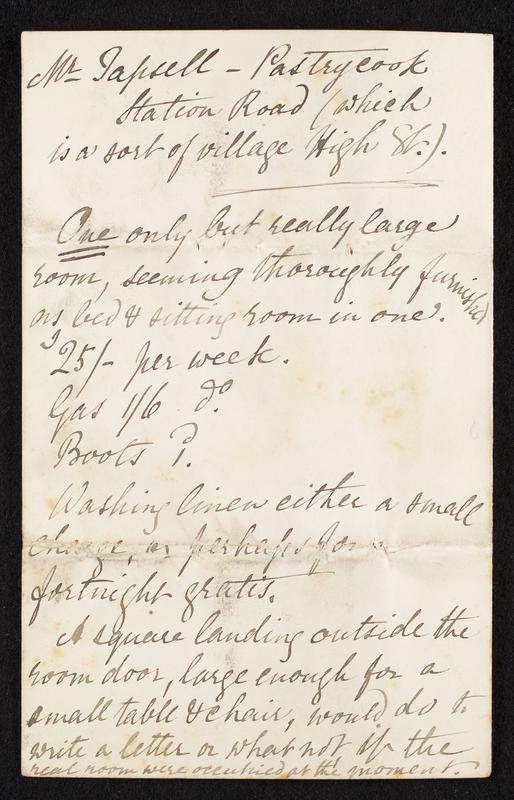 Mr Tapsell - Pastrycook
Station Road (which
is a sort of village High St.).
One only but really large
room, seeming thoroughly furnished
as bed & sitting room in one.
25/- per week.
Gas 1/6 do.
Boots ?.
Washing linen either a small
charge, or perhaps for a
fortnight gratis.
A square landing outside the
room door, large enough for a
small table & chair, would do to
write a letter or what not if the
real room were occupied at the moment.